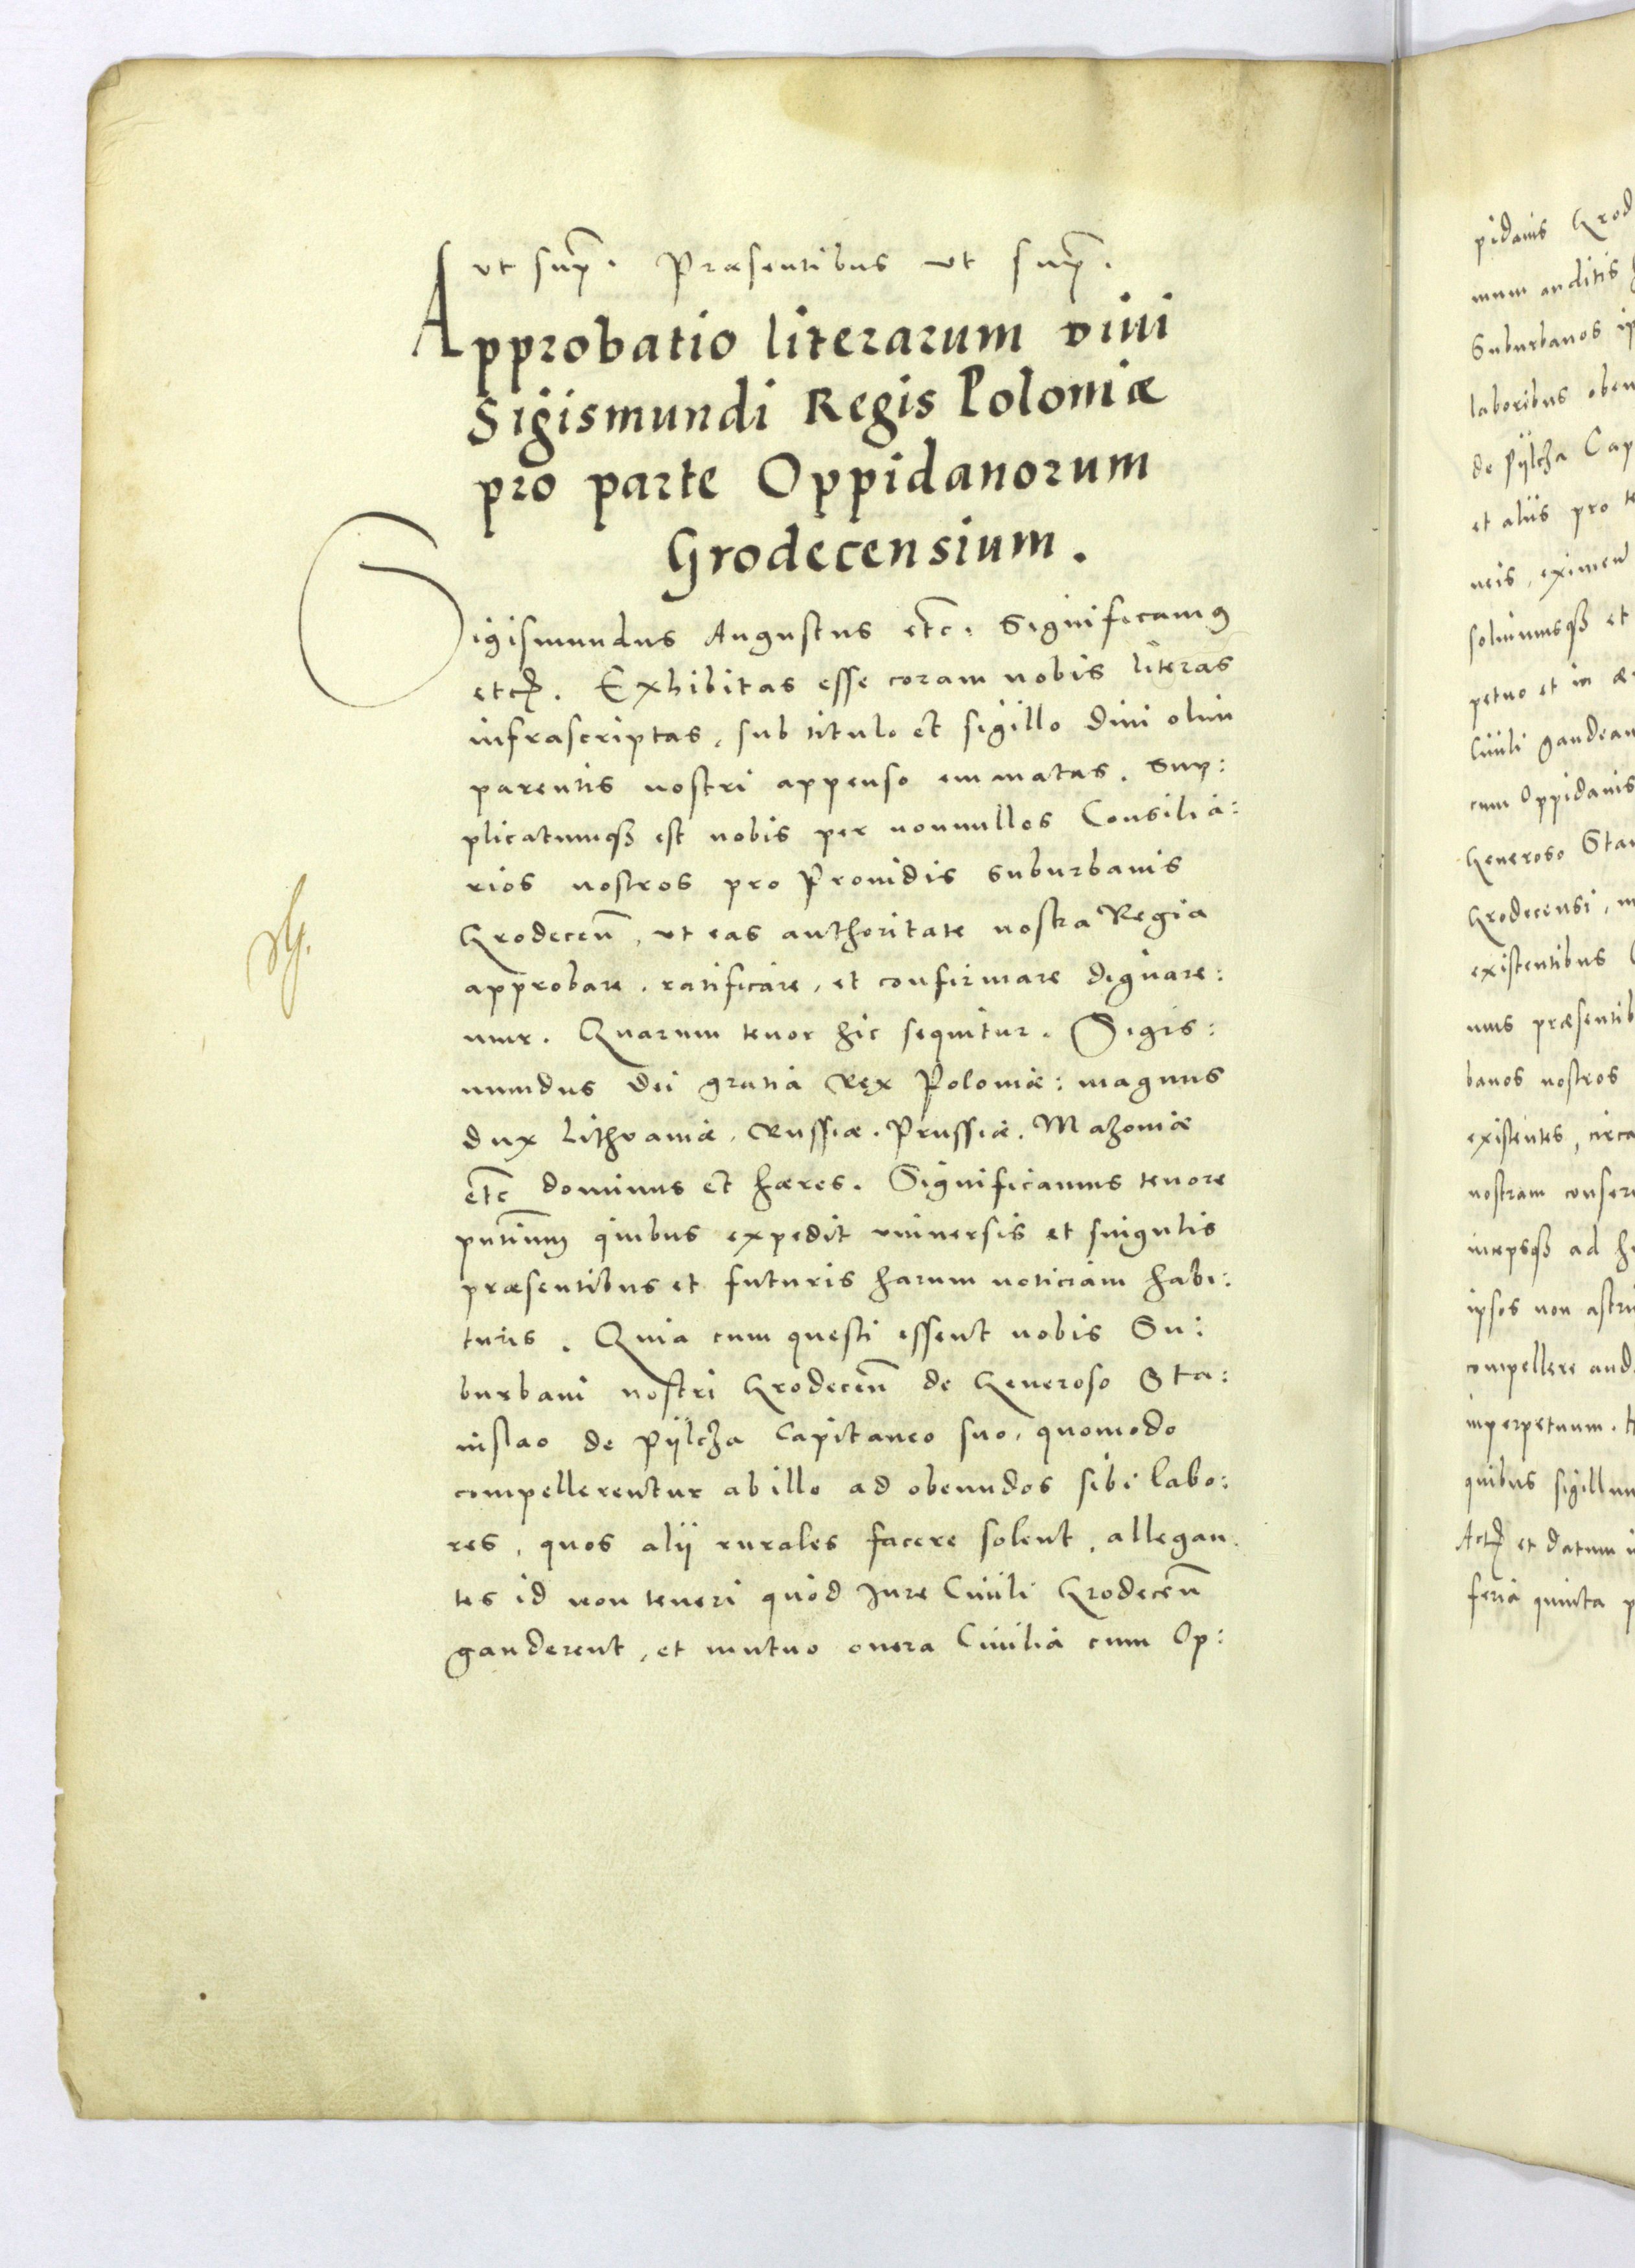 ut sup. Præsentibus ut sup.
Approbatio literarum divi
Sigismundi Regis Poloniæ
pro parte Oppidanorum
Grodecensium.
Sigismundus Augustus etc. Significamus
etc. Exhibitas esse coram nobis literas
infrascriptas, sub titulo et sigillo divi olim
parentis nostri appenso emanatas. Sup:
plicatumque est nobis per nonnullos Consilia:
rios nostros pro Providis suburbanis
Grodecen, ut eas authoritate nostra Regia
approbare, ratificare, et confirmare dignare:
mur. Quarum tenor hic sequitur. Sigis:
mundus dei gratia Rex Poloniæ: magnus
dux Lithvaniæ, Russiæ. Prussiæ. Mazoviæ
etc dominus et hæres. Significamus tenore
pntium quibus expedit universis et singulis
præsentibus et futuris harum noticiam habi:
turis. Quia cum questi essent nobis Su:
burbani nostri Grodecen de Generoso Sta:
nislao de Pylcza Capitaneo suo, quomodo
compellerentur ab illo ad obeundos sibi labo:
res, quos alii rurales facere solent, allegan
tes id non teneri quod Jure Civili Grodecen
gauderent, et mutuo onera Civilia cum Op:
pidanis Grod
mum auditis
Suburbanos ip
laboribus obeu
de Pylcza Cap
et aliis pro te
neis, eximen
solvimusque et
petuo et in
Civili gaudean
cum Oppidanis
Generoso Sta
Grodecensi,
existentibus
mus præsentib
banos nostros
existentes, circa
nostram conser
incepsque ad
ipsos non astri
compellere aud
inperpetuum.
quibus sigillum
Act et datum
feria quinta p